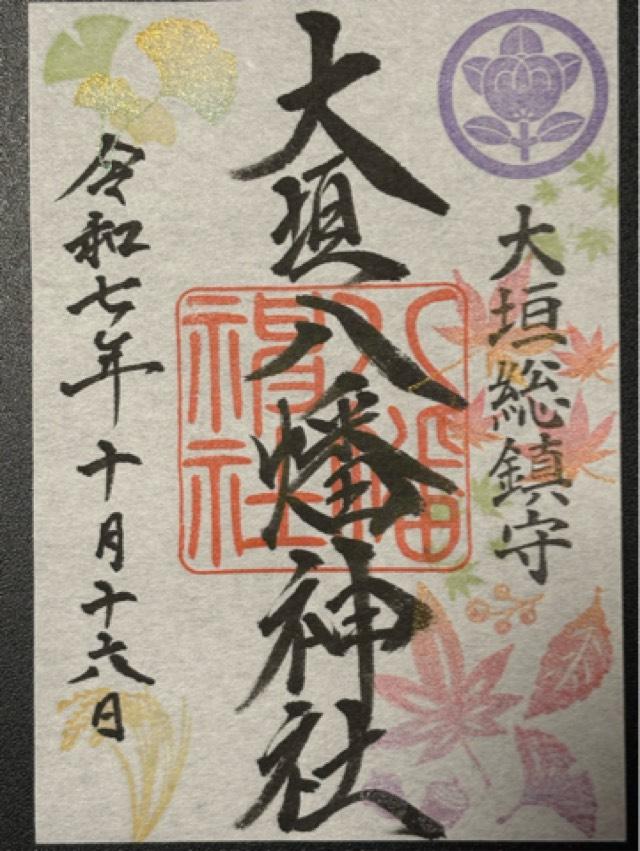 大垣総鎮守
大垣八幡神社
八幡
神社
令和七年十月十六日